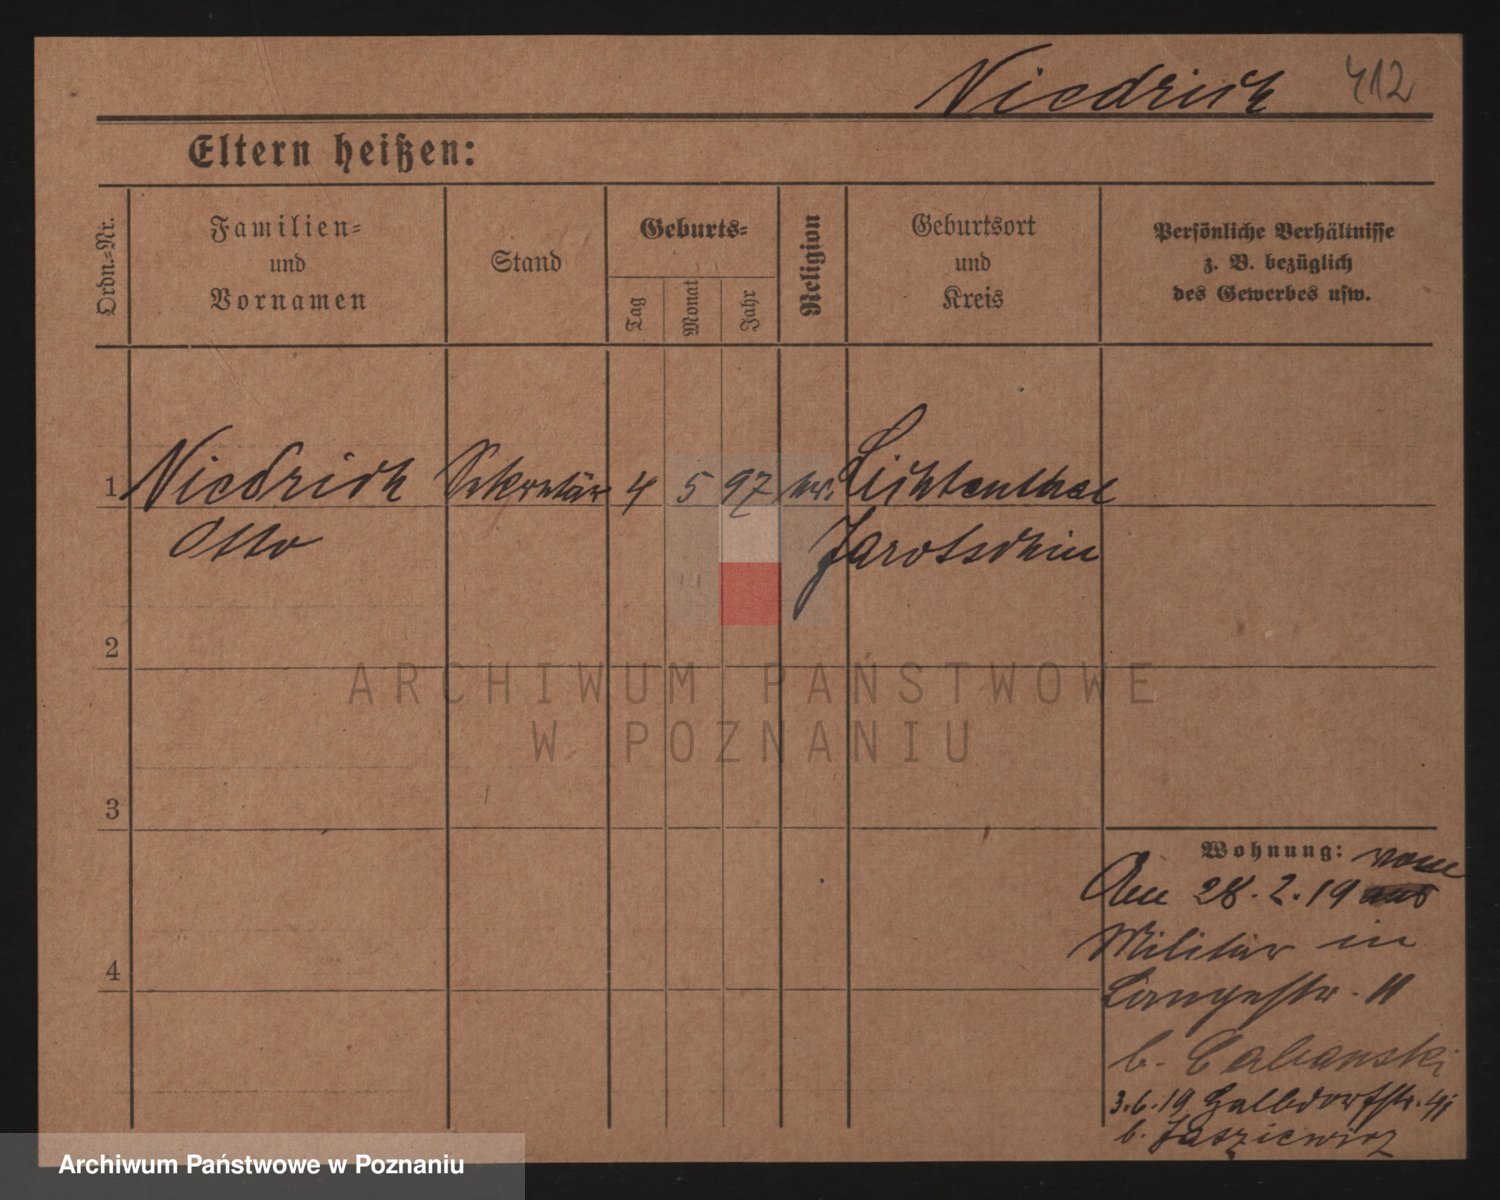 Niedrich 412
Eltern heißen:
Ordn.-Nr.
Familien-
und
Vornamen
Stand
Geburts-
Tag
Monat
Jahr
Religion
Geburtsort
und
Kreis
Persönliche Verhältnisse
z. B. bezüglich
des Gewerbes usw.
1 Niedrich Sekretär 4 5 97 Lichtenthal
Otto Jarotschin
2
3
4
Wohnung: vom
Am 28.2.19 aus
Militär in
Langestr. 11
b. Cabanski
3.6.19
b.
ARCHIWUM PAŃSTWOWE
W POZNANIU
Archiwum Państwowe w Poznaniu